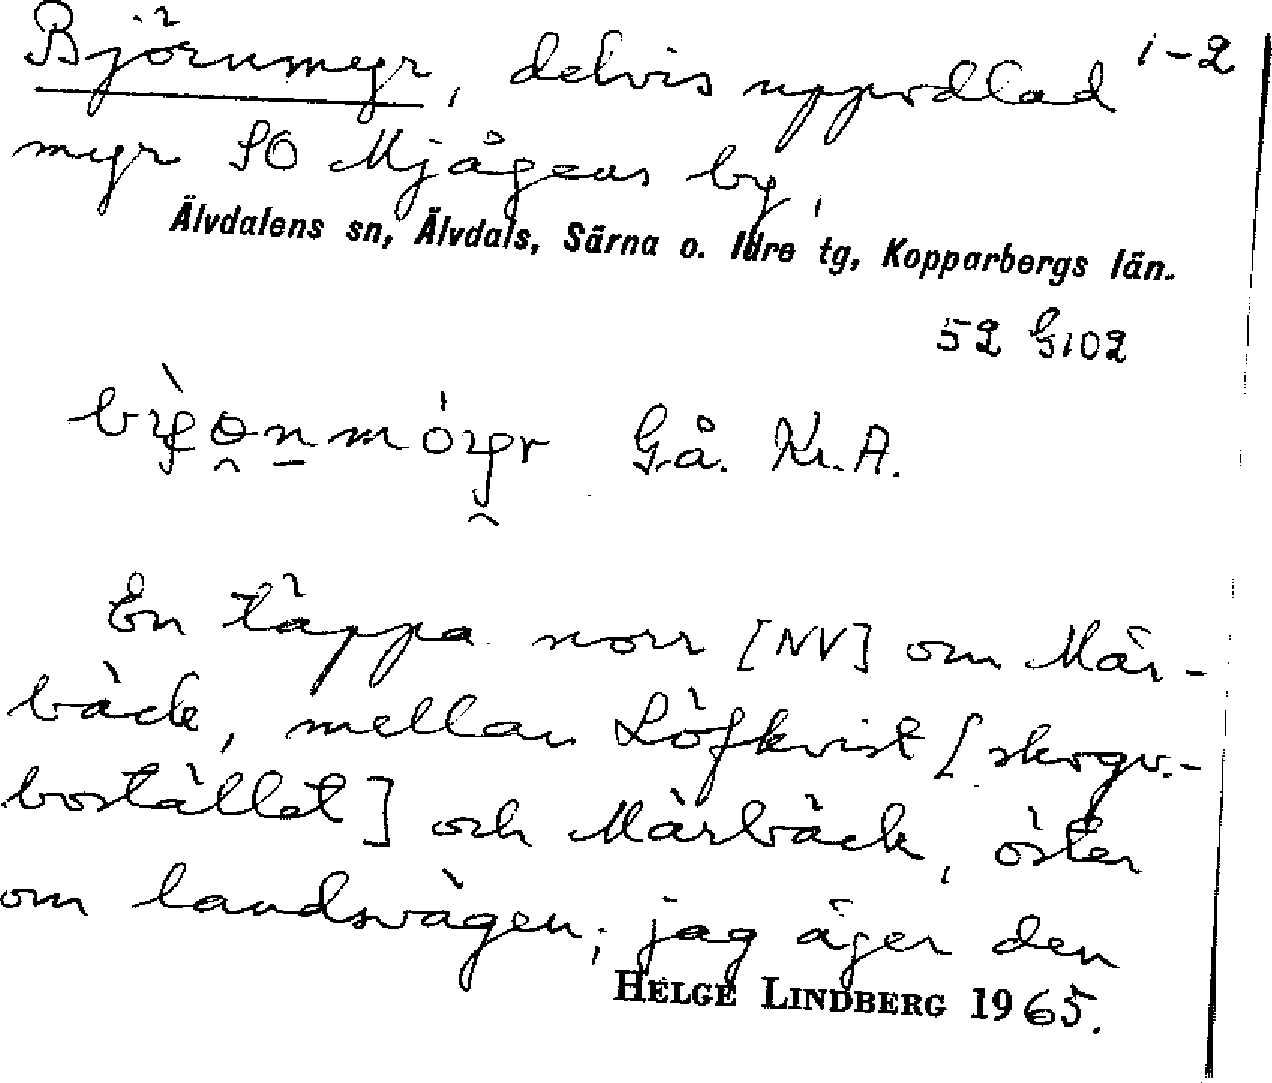 Björnmyr, delvis uppodlad 1-2
myr SO Mjågens by,
Älvdalens sn, Älvdals, Särna o. Idre tg, Kopparbergs län.
52 G102
Gå. Kr. A.
En täppa norr [NV] om Mår-
bäck, mellan Löfkvist [skogv.-
bostället] och Mårbäck, öster
om landsvägen; jag äger den
HELGE LINDBERG 1965.